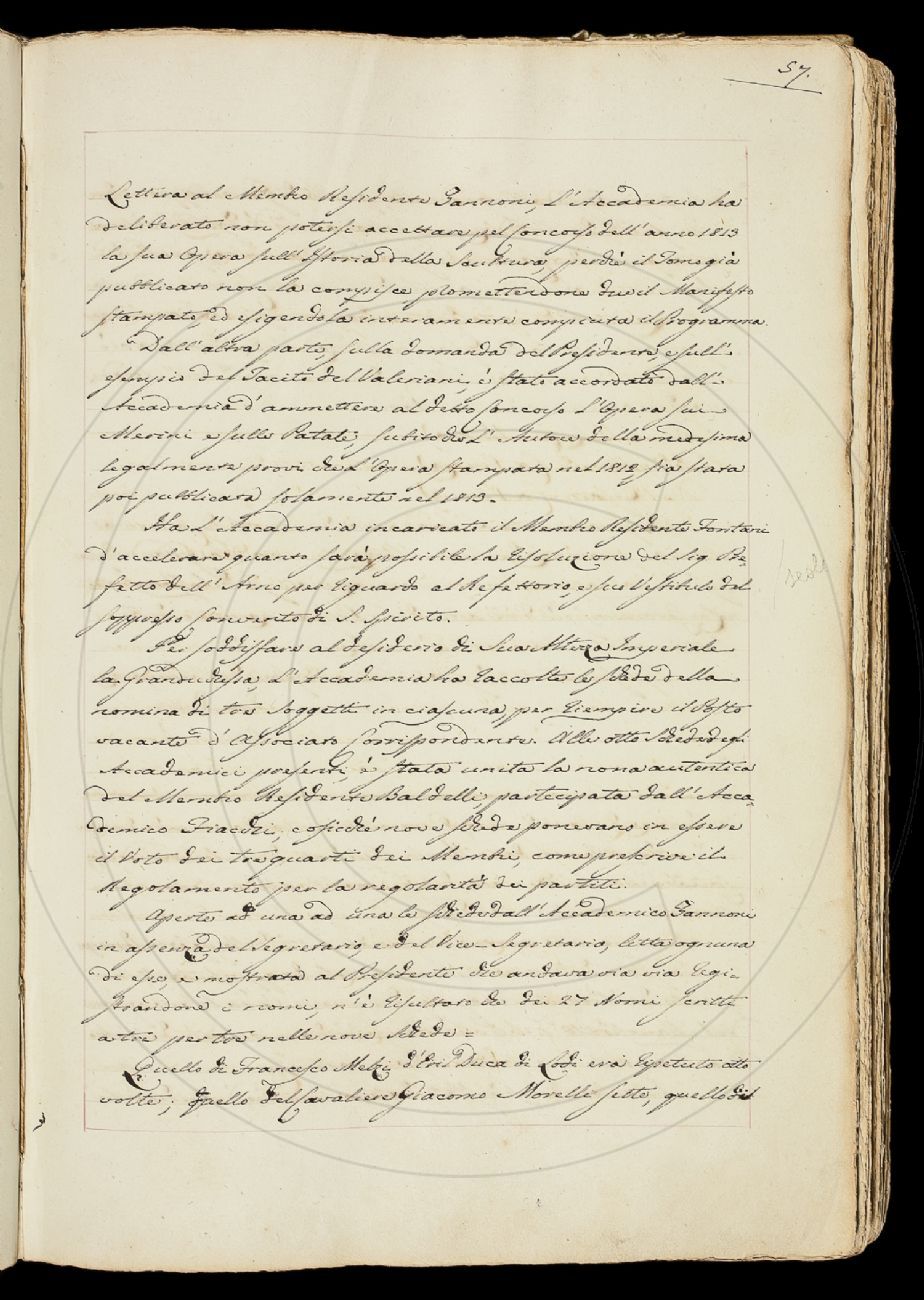 57.
Lettera al Membro Residente Zannoni, L'Accademia ha
deliberato non potersi accettare pel Concorso dell'anno 1813
la sua Opera sull'Istoria della Scultura, perchè il Tomo già
pubblicato non la compisce promettendone due il Manifesto
stampato, ed esigendola interamente compiuta il Programma.
Dall'altra parte, sulla domanda del Presidente, e sull'
esempio del Tacito del Valeriani, è stato accordato dall'
Accademia d'ammettere al detto Concorso L'Opera sui
Merini e sulle Patate, subito che L'Autore della medesima
legalmente provi che L'Opera stampata nel 1812 sia stata
poi pubblicata solamente nel 1813.
Ha L'Accademia incaricato il Membro Residente Fontani
d'accelerare quanto sarà possibile la risoluzione del Sig. Pre-
fetto dell'Arno per riguardo al Refettorio, e suo Vestibulo del
soppresso Convento di S. Spirito.
Per soddisfare al desiderio di Sua Altezza Imperiale
la Granduchessa, L'Accademia ha raccolte le schede della
nomina di tre Soggetti in ciascuna, per riempire il Posto
vacante d'Associato Corrispondente. Alle otto Schede degli
Accademici presenti, è stata unita la nona autentica
del Membro Residente Baldelli, partecipata dall'Acca-
demico Fiacchi, cosicchè nove schede ponevano in essere
il Voto dei tre quarti dei Membri, come prescrive il
Regolamento per la regolarità dei partiti.
Aperte ad una ad una le schede dall'Accademico Zannoni
in assenza del Segretario, e del Vice-Segretario, letta ognuna
di esse, e mostrata al Presidente che andava via via regi-
strandone i nomi, n'è risultato che dei 27 Nomi scritti
a tre per tre nelle nove schede =
Quello di Francesco Melzi d'Eril Duca di Lodi era ripetuto otto
volte; quello del Cavaliere Giacomo Morelli sette, quello del